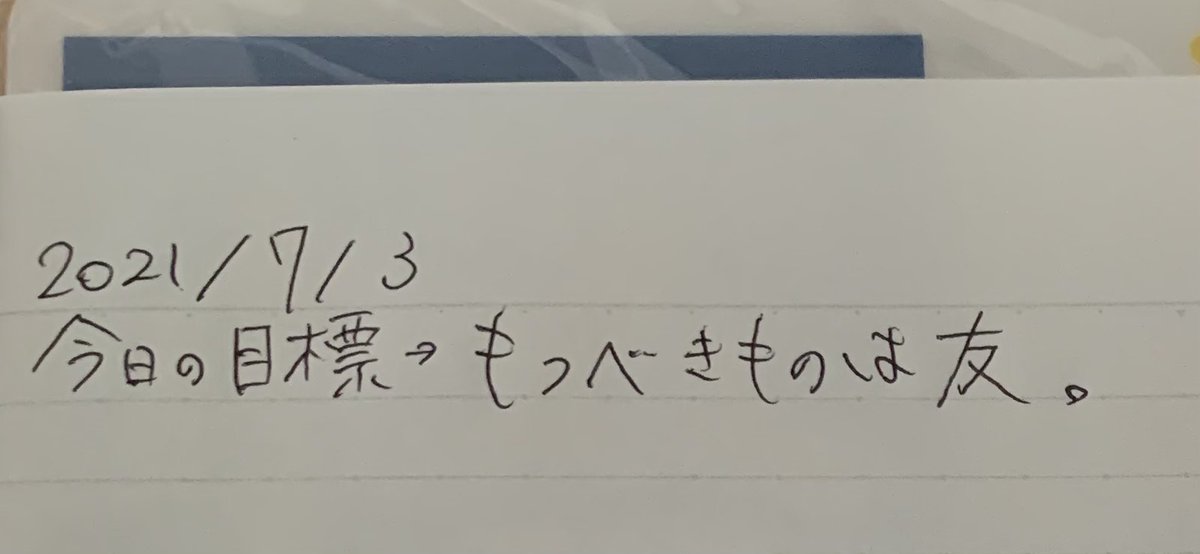 2021/7/3
今日の目標→もつべきものは友。